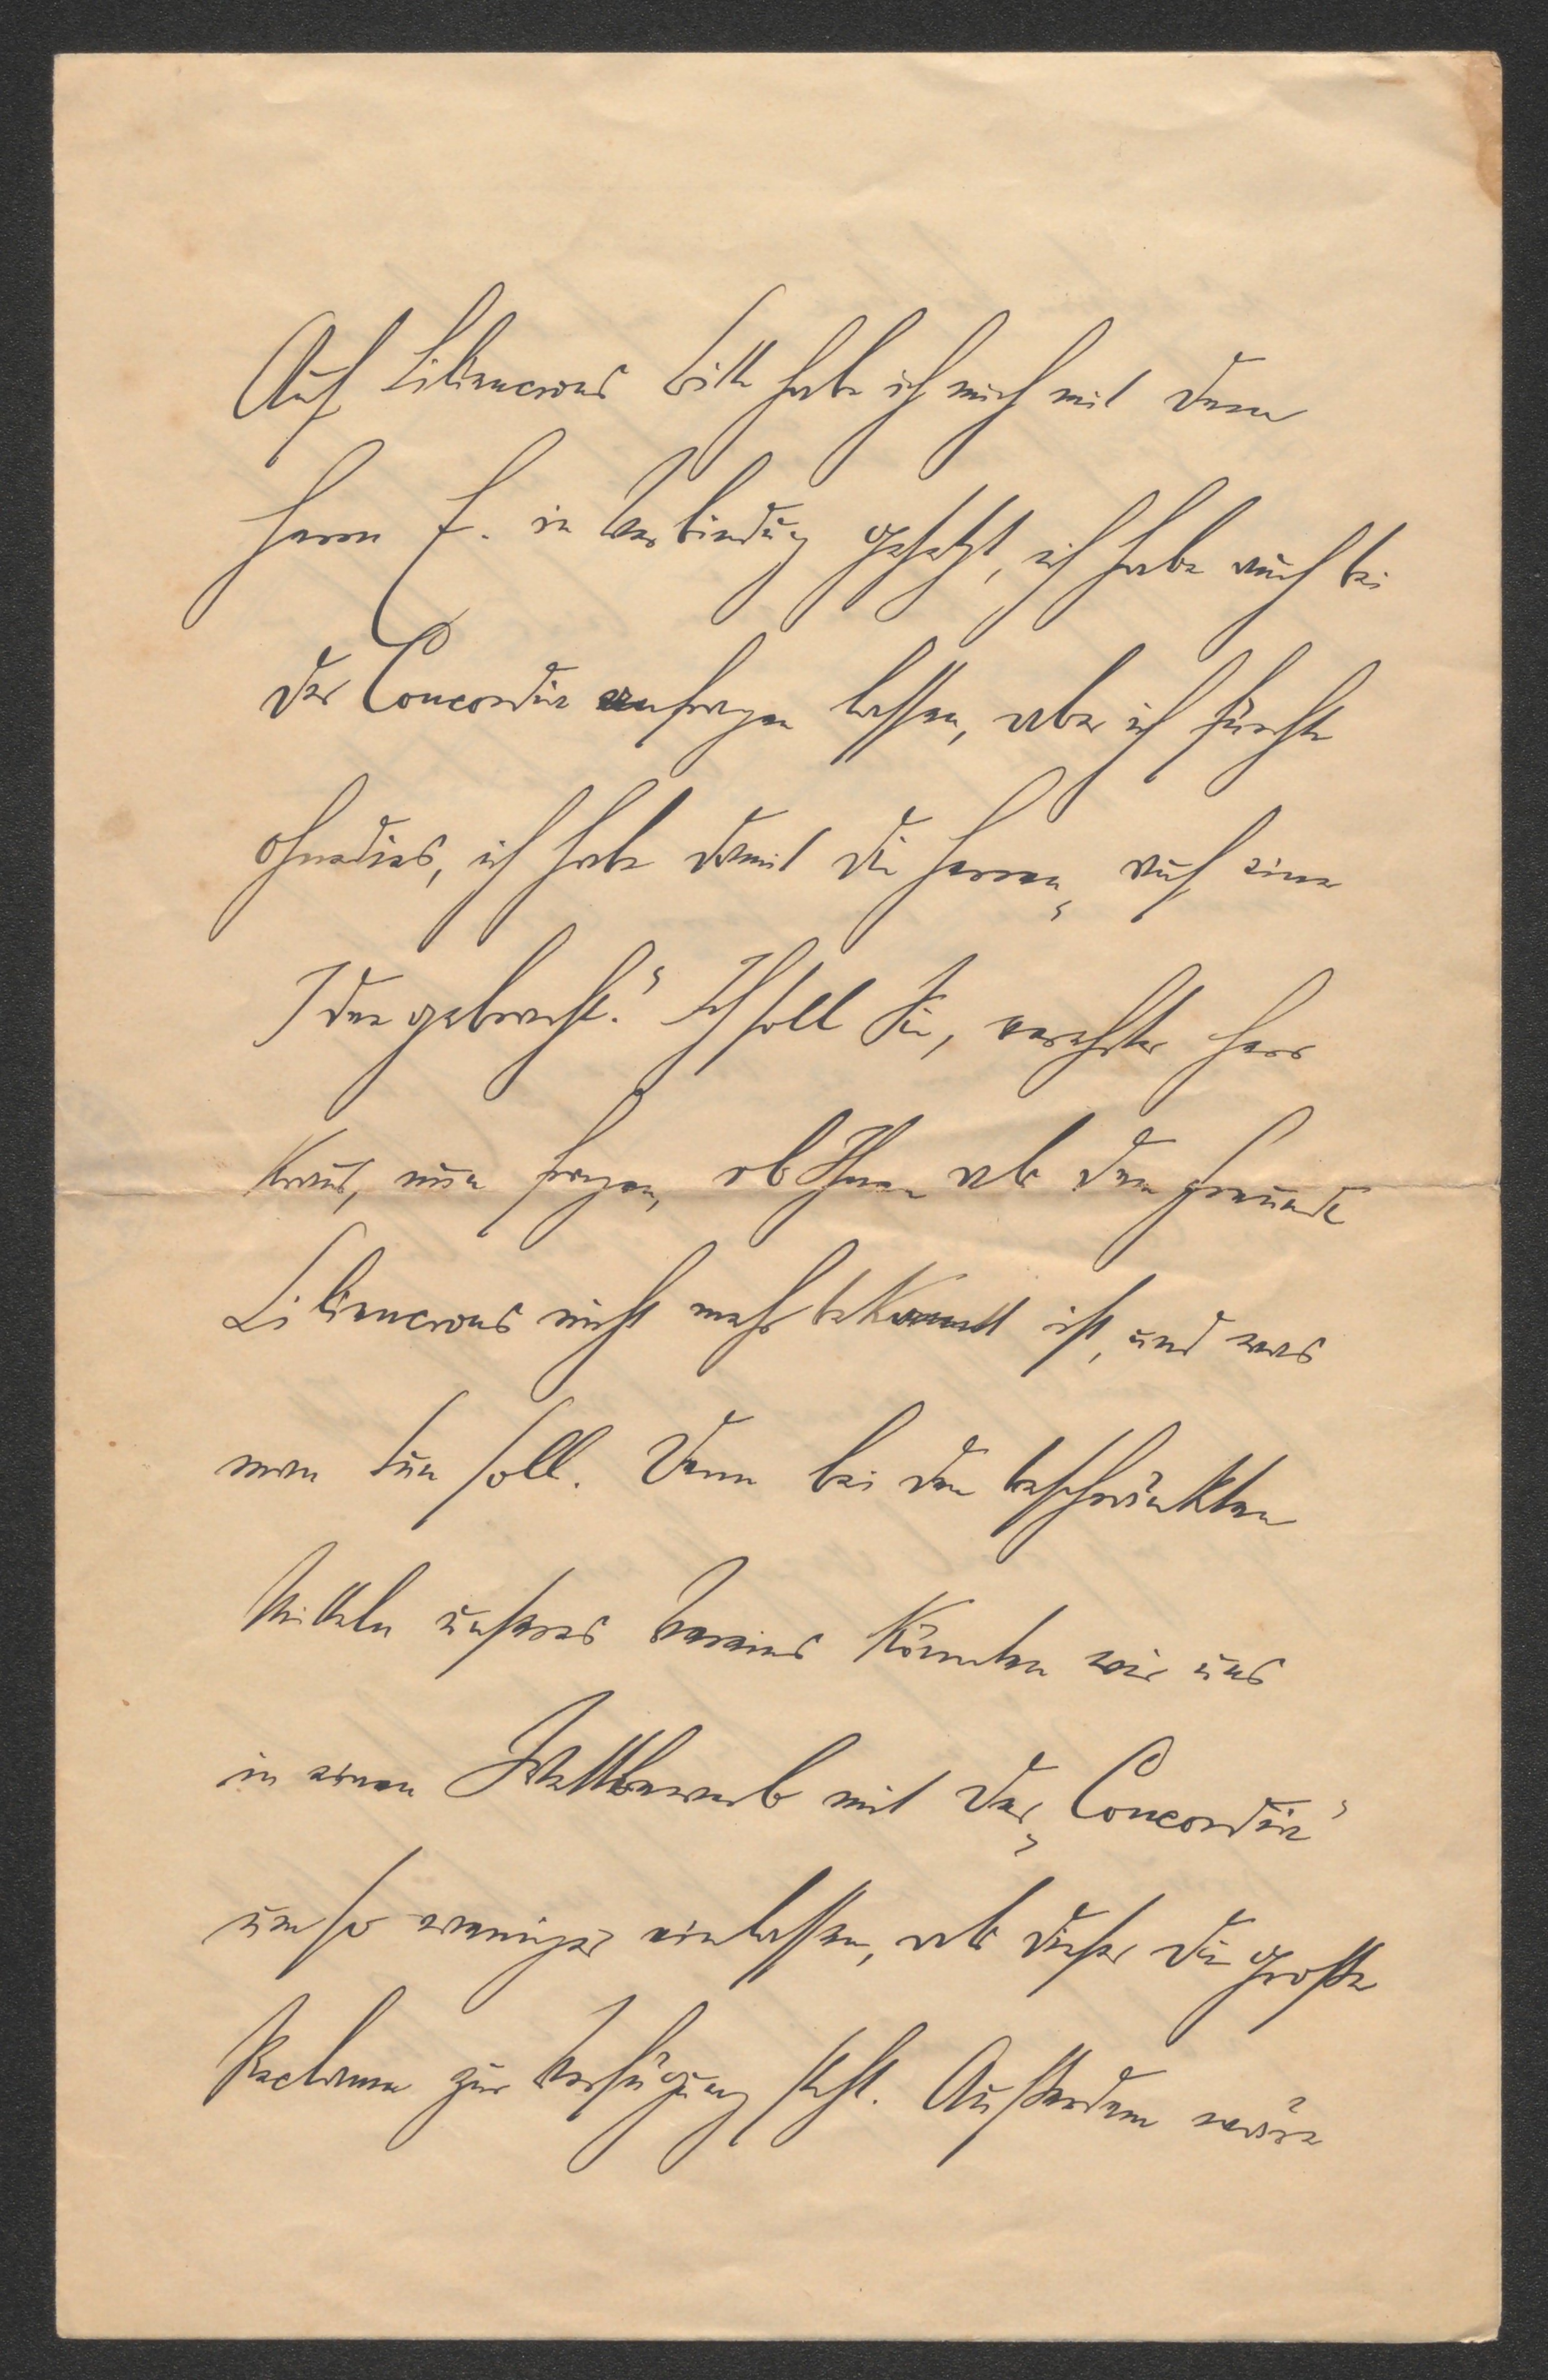 Auf Liliencrons Bitte habe ich mich mit dem
Herrn E. in Verbindung gesetzt, ich habe auch bei
der Concordia anfragen lassen, aber ich fürchte
ohnedies, ich habe damit die Herren „auf eine
Idee gebracht." Ich soll Sie, verehrter Herr
Kraus, nun fragen, ob Ihnen als dem Freunde
Liliencrons nicht mehr bekannt ist, und was
man tun soll. Denn bei den beschränkten
Mitteln unseres Vereins könnten wir uns
in einen Wettbewerb mit der „Concordia"
umso weniger einlassen, als dieser die große
Reclame zur Verfügung steht. Außerdem wäre